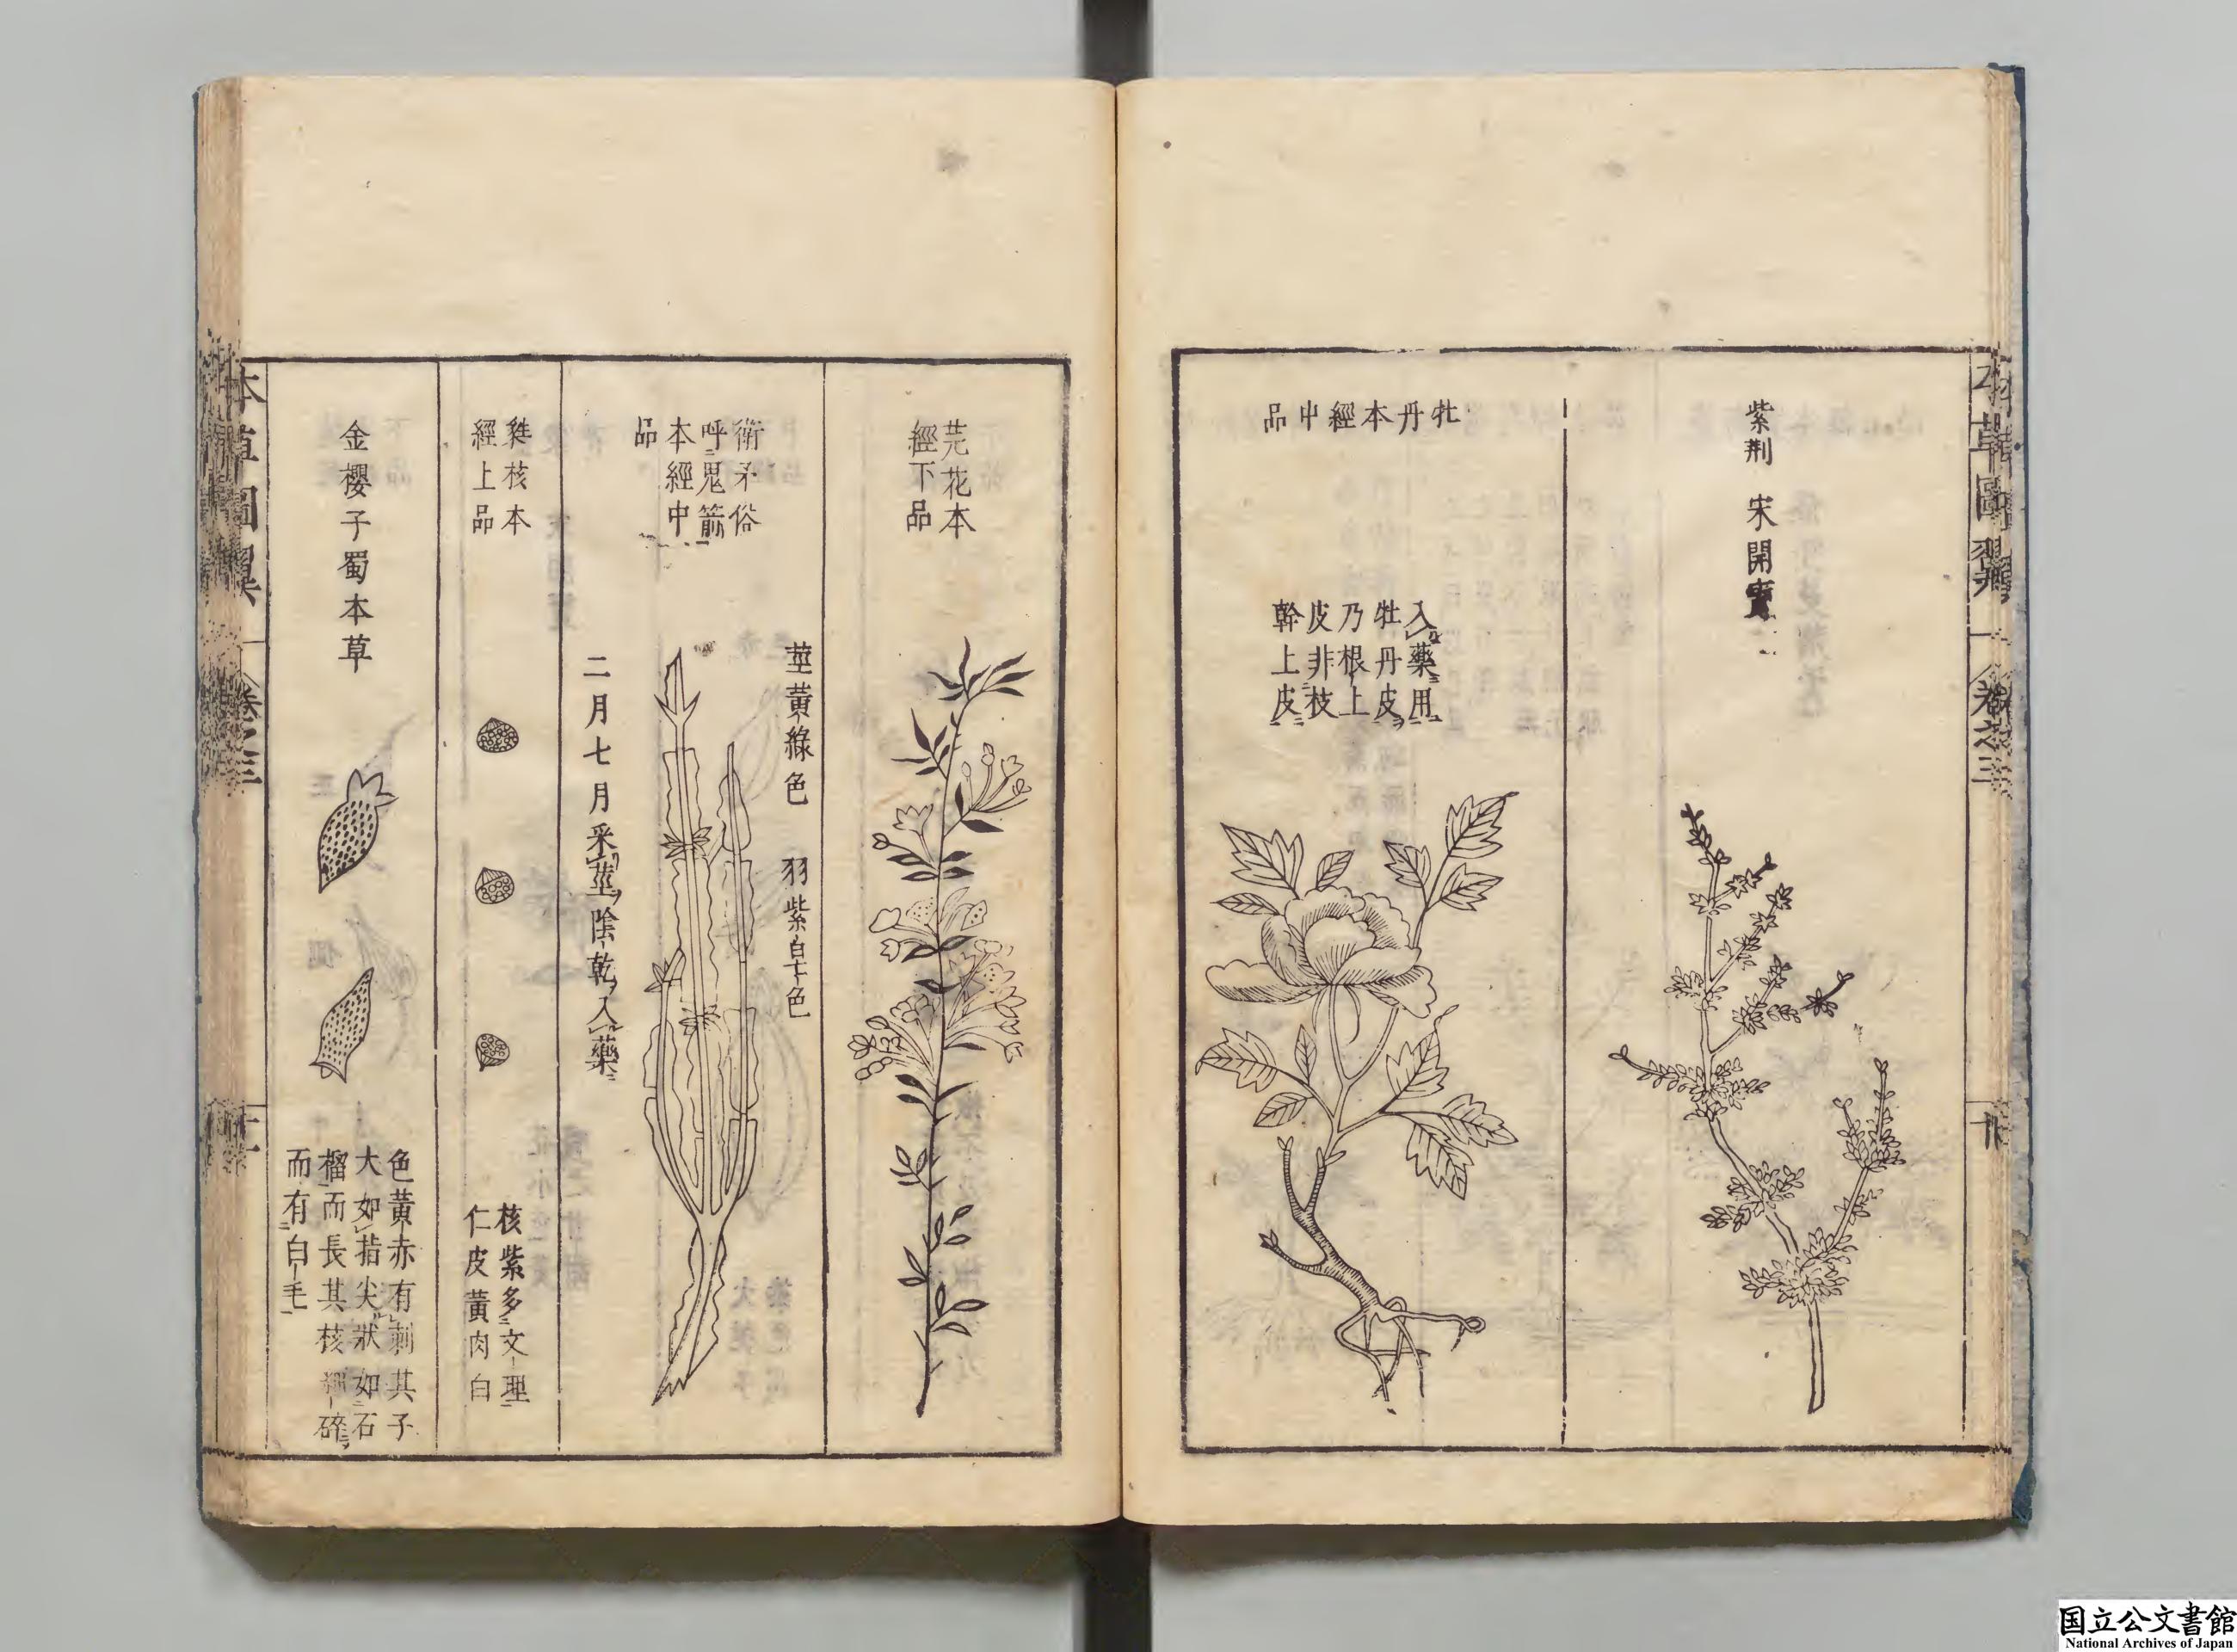 本草圖翼 卷之三
紫荆 宋開寶
牡丹本經中品
入藥用
牡丹皮
乃根上
皮非枝
幹上皮
芫花本
經下品
莖黃綠色 羽紫皂色
衛矛俗
呼鬼箭
本經中
品
二月七月采莖陰乾入藥
蕤核本
經上品
核紫多文理
仁皮黃肉白
金櫻子蜀本草
色黃赤有刺其子
大如指尖狀如石
榴而長其核細碎
而有白毛
本草圖翼 卷之三
国立公文書館
National Archives of Japan